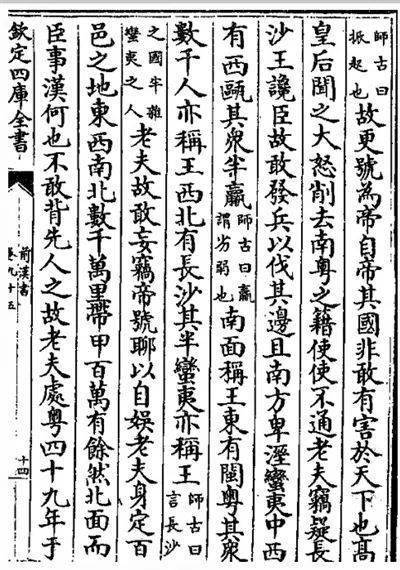 師古曰
振起也
故更號為帝自帝其國非敢有害於天下也髙
皇后聞之大怒削去南粤之籍使使不通老夫竊疑長
沙王讒臣故敢發兵以伐其邊且南方卑溼蠻夷中西
有西甌其衆半羸
師古曰羸
謂劣弱也
南面稱王東有閩粤其衆
數千人亦稱王西北有長沙其半蠻夷亦稱王
師古曰
言長沙
之國半雜
蠻夷之人
老夫故敢妄竊帝號聊以自娛老夫身定百
邑之地東西南北數千萬里帶甲百萬有餘然北面而
臣事漢何也不敢背先人之故老夫處粤四十九年于
欽定四庫全書
前漢書
卷九十五
十四